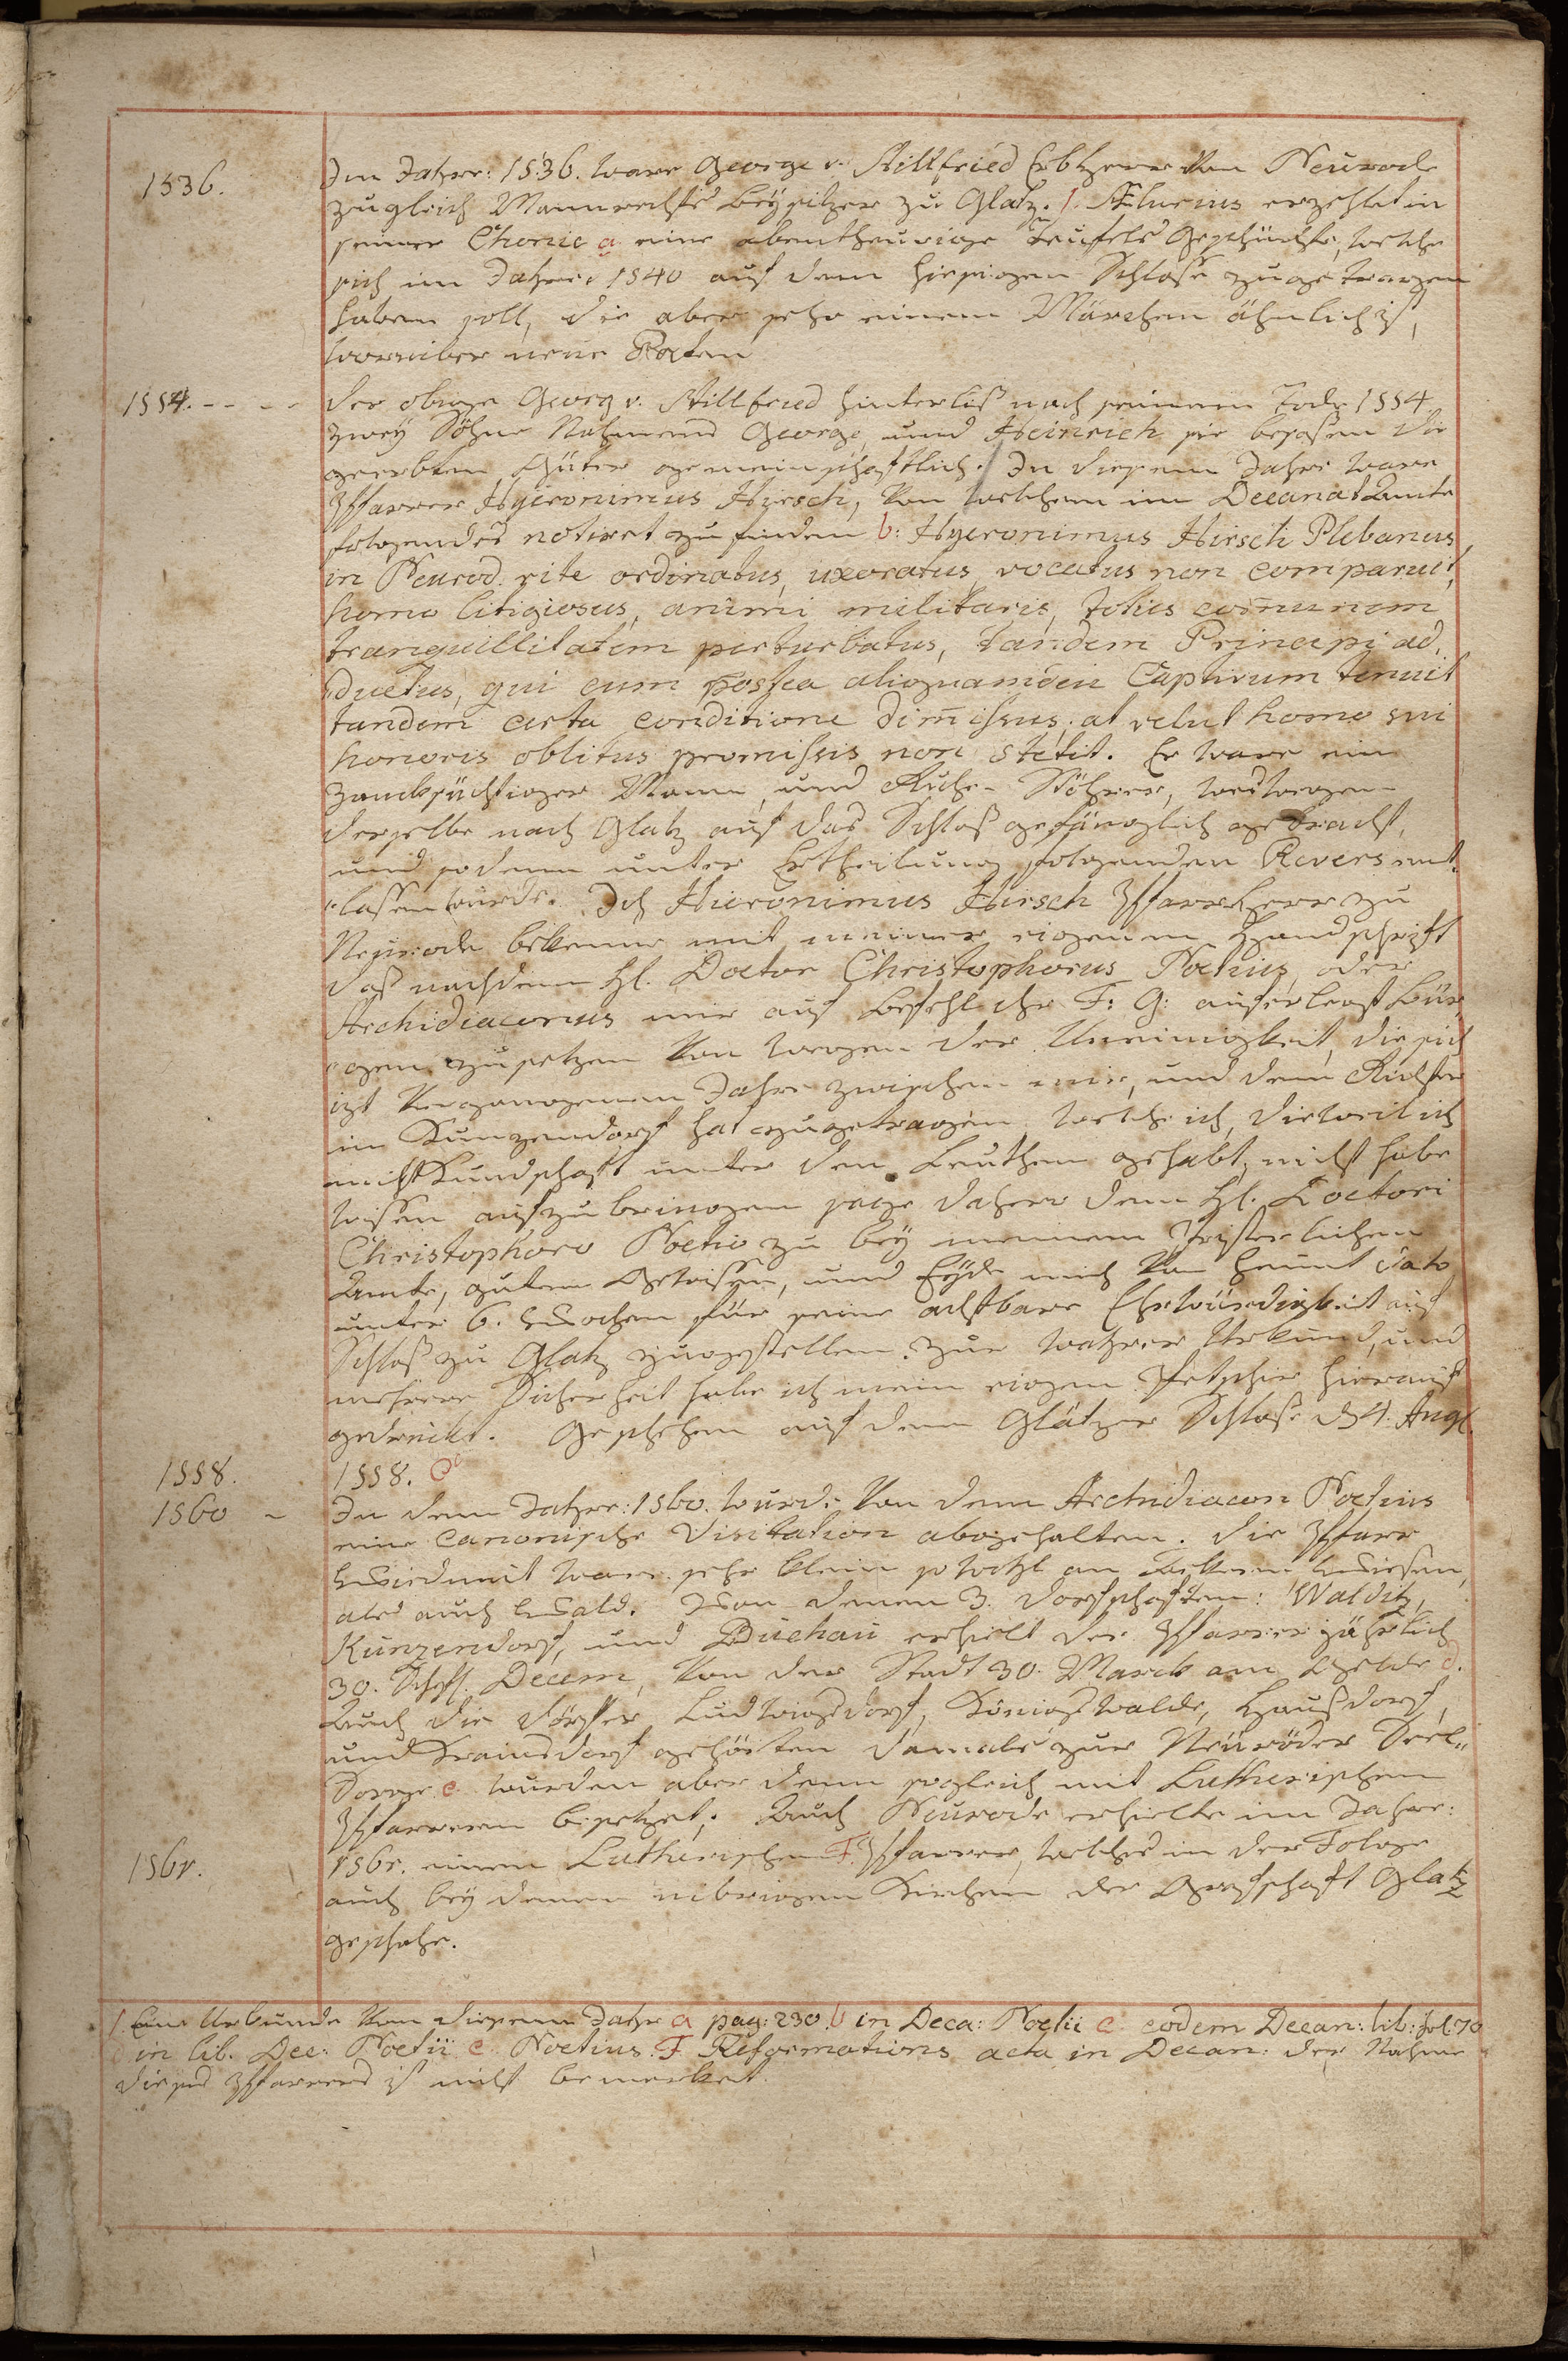 1536.
Im Jahre: 1536. ware George v. Stillfried Erbherr von Neurode
zugleich Mannrechts Beysitzer zu Glatz. f. Ælurius erzehlet in
seiner Chronic a eine abentheurige Teufels Geschichte, welche
sich im Jahre 1540 auf dem hiesigen Schlosse zugetragen
haben soll, die aber sehr einem Märchen ähnlich ist,
worüber neue Noten
1554. - - - -
Der obige Georg v. Stillfried hinterliß nach seinem Tode 1554
zwey Söhne Nahmens George, und Heinrich sie besaßen die
geerbten Güter gemeinschaftlich. In diesem Jahre ware
Pfarrer Hyeronimus Hirsch, von welchem im Decanat Amte
folgendes notiret zu finden b: Hyeronimus Hirsch Plebanus
in Neurod. rite ordinatus, uxoratus, vocatus non comparuit,
homo litigiosus, animi militaris, totius com̄unem
tranquillitatem perturbatus, tandem Principi ad,
ductus, qui eum postea aliquamdiu Captivum tenuit
tandem certa conditione dim̄issus, at velut homo sui
honoris oblitus promissis non stetit. Er ware ein
zancksüchtiger Mann, und Ruhe- Stöhrer, deswegen
derselbe nach Glatz auf das Schloß gefänglich gebracht,
und sodenn unter Ertheilung folgenden Revers ent,
lassen wurde. Ich Hieronimus Hirsch Pfarrherr zu
Neurode bekenne mit meiner eigenen Handschrift
daß nachdem H. Doctor Christophorus Noetius, oder
Archidiaconus mir auf Befehl Ihr F: G: auferlegt Bür,
gen zu setzen von wegen der Uneinigkeit, die sich
izt vergangenem Jahre zwischen mir, und dem Richter
in Kunzendorf hat zugetragen, welche ich, dieweil ich
nicht Kundschaft unter den Leuthen gehabt, nicht habe
wissen aufzubringen sage daher dem H. Doctori
Christophoro Noetio zu bey meinem Priesterlichen
Amte, gutem Gewissen, und Eyde mich von heunt dato
unter 6. Wochen für seine achtbare Ehrwürdigkeit auf
Schloß zu Glatz zugestellen. Zur wahrer Urkund, und
mehrere Sicherheit habe ich mein eigen Petschir hierauf
gedruckt. Geschehen auf dem Glätzer Schlosse d 4. Aug.
1558.
1558. c
1560 -
In dem Jahre: 1560. wurde von dem Archidiacon Noetius
eine canonische Visitation abgehalten. Die Pfarr
Wiedmut ware sehr klein so wohl an Aekern Wiesen,
als auch Wald. Von denen 3. Dorfschaften: Walditz,
Kunzendorf, und Buchau erhielt der Pfarrer jährlich
30. Scheffl. Decem, von der Stadt 30. Marck am Gelde d.
Auch die Dörfer Ludwigsdorf, Königswalde, Haußdorf,
und Krainsdorf gehörten damals zur Neuröder Seel„
Sorge e. wurden aber denn sogleich mit Lutherischen
Pfarrern besetzet. Auch Neurode erhielte im Jahre:
1561.
1561. einen Lutherischen F. Pfarrer, welches in der Folge
auch bey denen uibrigen Kirchen der Grafschaft Glatz
geschahe.
f. Eine Urkunde von diesem Jahre a pag: 230. b in Deca: Noetii c eodem Decan: lib: fol: 70
d in lib. Dec: Noetii e. Noetius. F. Reformations acta in Decan: der Nahme
dieses Pfarrers ist nicht bemerket.